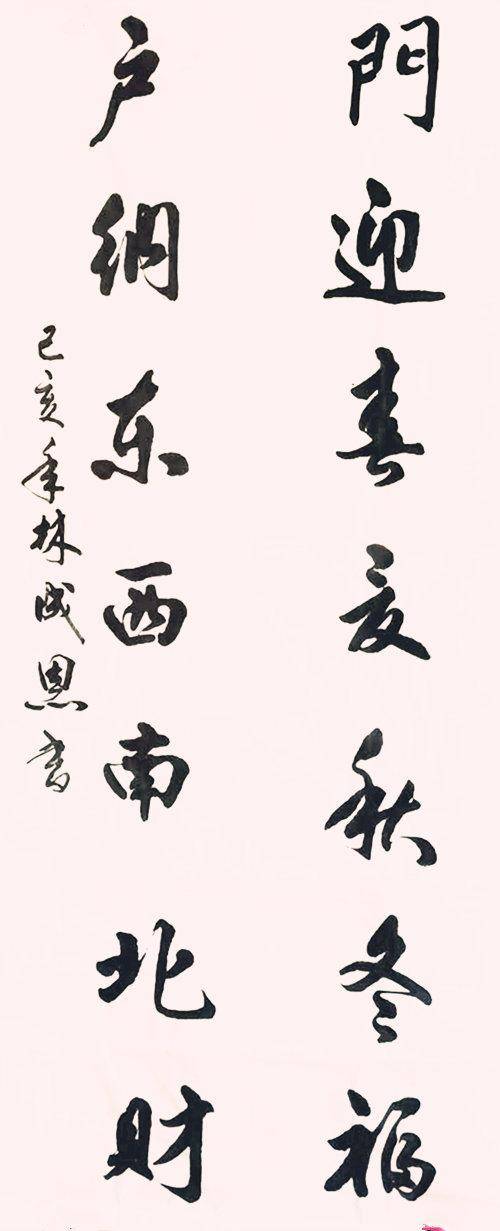 門迎春夏秋冬福
户纳东西南北财
己亥年林成恩书